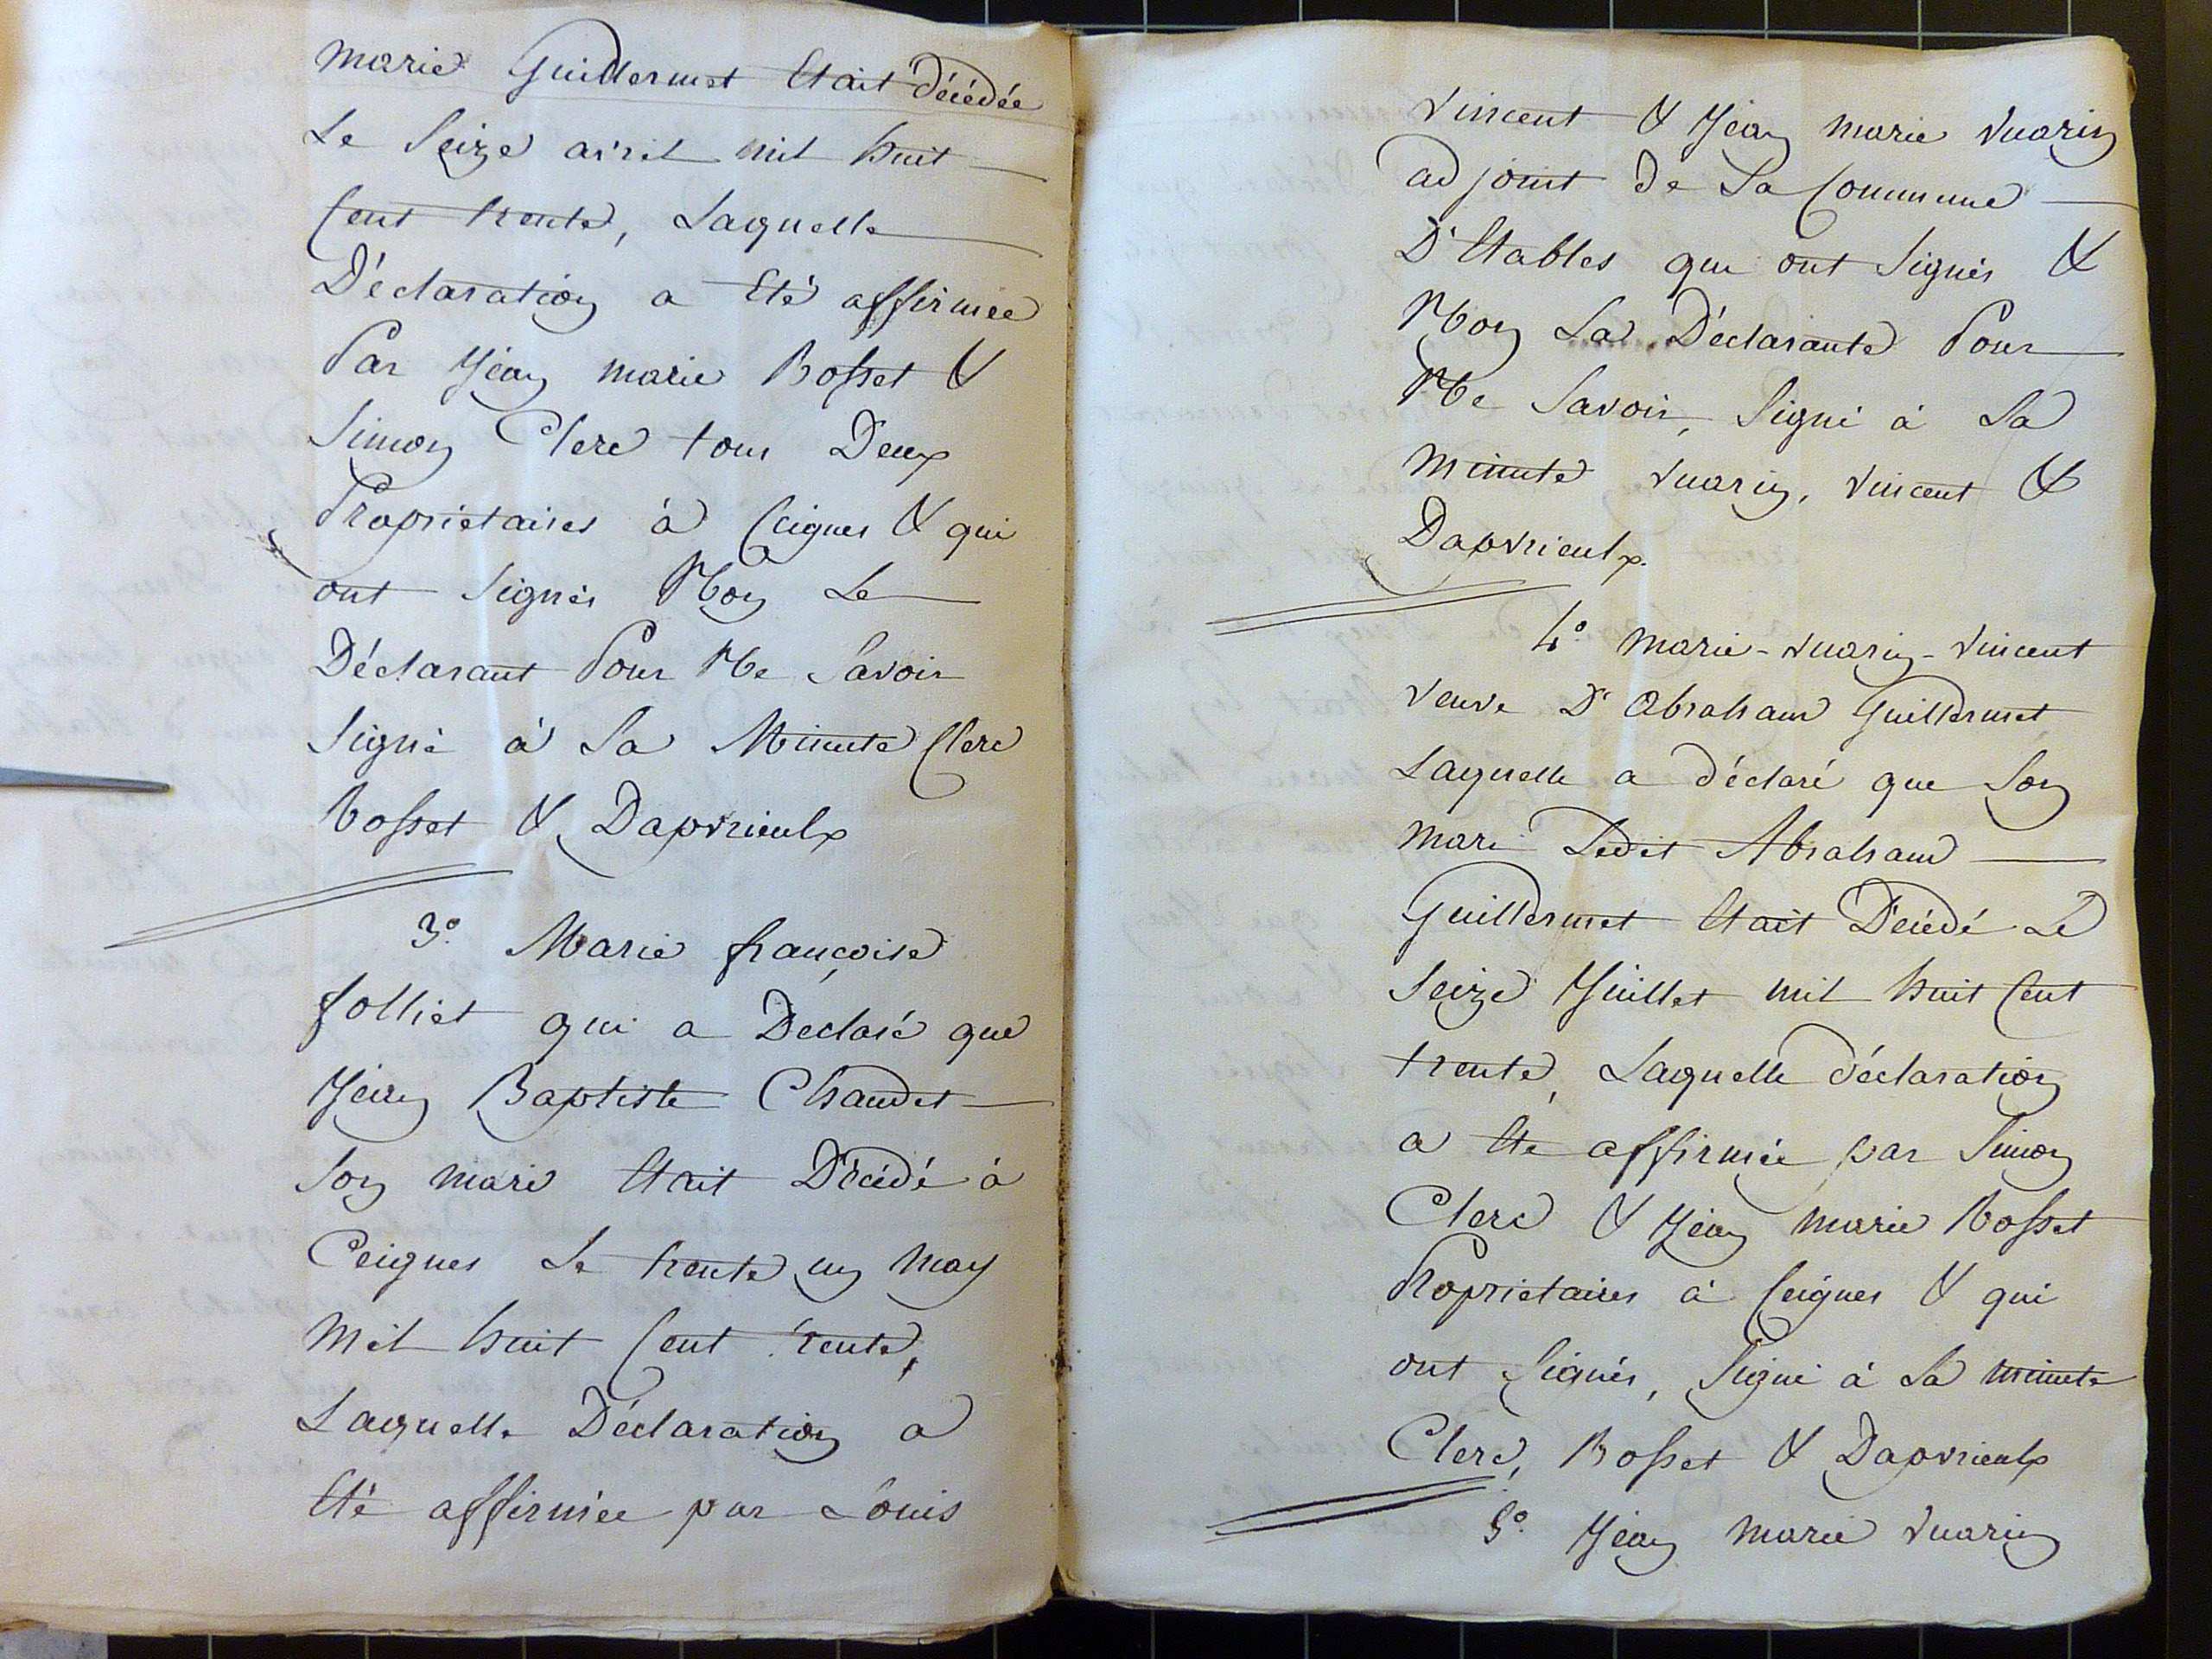 marie Guillermet Etait décédée
Le Seize avril mil huit
Cent trente, Laquelle
Déclaration a Eté affirmée
Par Jean marie Bosset &
Simon Clerc tous Deux
Propriétaires à Ceignes & qui
ont Signés Non Le
Déclarant Pour Ne Savoir
Signé à La Minute Clerc
Bosset & Dapvrieulx
3º Marie françoise
folliet qui a Déclaré que
Jean Baptiste Chaudet
Son mari Etait Décédé à
Ceignes Le trente un May
Mil huit Cent trente,
Laquelle Déclaration a
Eté affirmée par Louis
Vincent & Jean marie Vuarin
adjoint de La Commune
D'Etables qui ont Signés &
Non La Déclarante Pour
Ne Savoir, Signé à La
Minute Vuarin, Vincent &
Dapvrieulx.
4º marie-Vuarin-Vincent
Veuve D'Abraham Guillermet
Laquelle a déclaré que Son
Mari Ledit Abraham
Guillermet Etait Décédé Le
Seize Juillet mil huit Cent
trente, Laquelle déclaration
a Eté affirmée par Simon
Clerc & Jean marie Bosset
Propriétaires à Ceignes & qui
ont Signés, Signé à La minute
Clerc, Bosset & Dapvrieulx
5º Jean Marie Vuarin